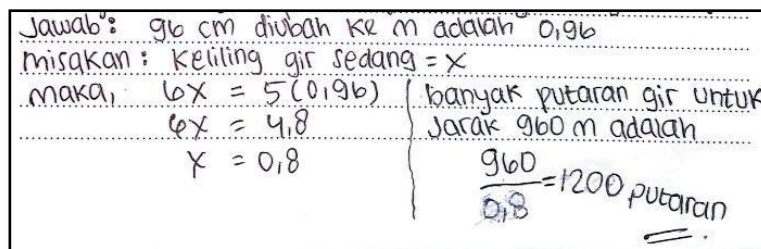 Jawab : 96 cm diubah ke m adalah 0,96
misakan : Keliling gir sedang = x
maka, 6x = 5(0,96)
6x = 4,8
x = 0,8
banyak putaran gir untuk
Jarak 960 m adalah
960/0,8 = 1200 putaran